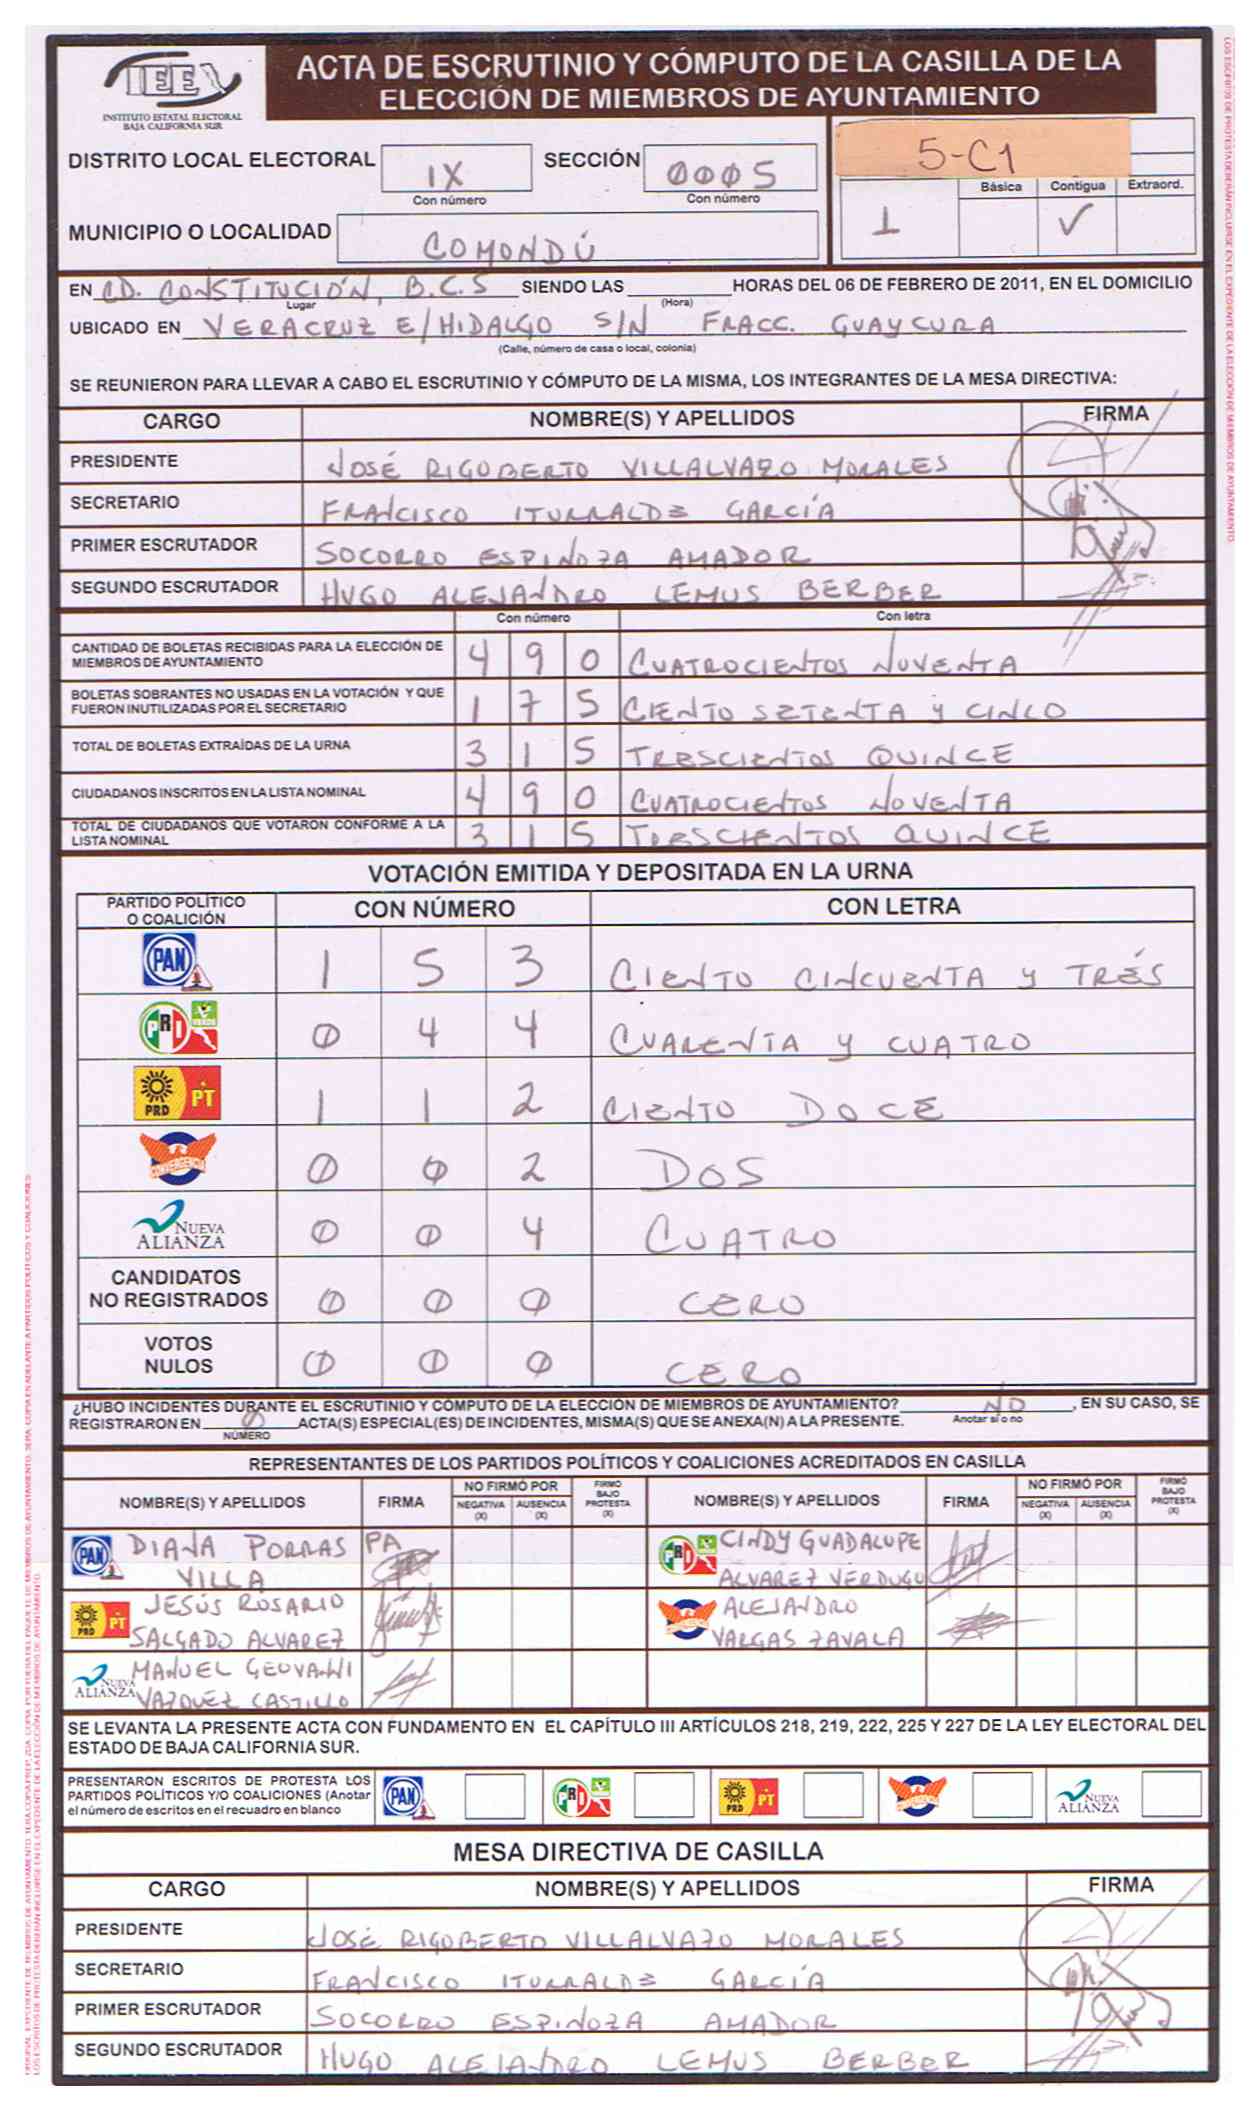 IEE
INSTITUTO ESTATAL ELECTORAL
BAJA CALIFORNIA SUR
ACTA DE ESCRUTINIO Y CÓMPUTO DE LA CASILLA DE LA
ELECCIÓN DE MIEMBROS DE AYUNTAMIENTO
DISTRITO LOCAL ELECTORAL IX SECCIÓN 0005
Con número Con número
5-C1
Básica Contigua Extraord.
1 ✓
MUNICIPIO O LOCALIDAD COMONDÚ
EN CD. CONSTITUCIÓN, B.C.S SIENDO LAS ______ HORAS DEL 06 DE FEBRERO DE 2011, EN EL DOMICILIO
Lugar (Hora)
UBICADO EN VERACRUZ E/HIDALGO S/N FRACC. GUAYCURA
(Calle, número de casa o local, colonia)
SE REUNIERON PARA LLEVAR A CABO EL ESCRUTINIO Y CÓMPUTO DE LA MISMA, LOS INTEGRANTES DE LA MESA DIRECTIVA:
CARGO NOMBRE(S) Y APELLIDOS FIRMA
PRESIDENTE JOSÉ RIGOBERTO VILLALVAZO MORALES
SECRETARIO FRANCISCO ITURRALDE GARCÍA
PRIMER ESCRUTADOR SOCORRO ESPINOZA AMADOR
SEGUNDO ESCRUTADOR HUGO ALEJANDRO LEMUS BERBER
Con número Con letra
CANTIDAD DE BOLETAS RECIBIDAS PARA LA ELECCIÓN DE
MIEMBROS DE AYUNTAMIENTO 4 9 0 CUATROCIENTOS NOVENTA
BOLETAS SOBRANTES NO USADAS EN LA VOTACIÓN Y QUE
FUERON INUTILIZADAS POR EL SECRETARIO 1 7 5 CIENTO SETENTA Y CINCO
TOTAL DE BOLETAS EXTRAÍDAS DE LA URNA 3 1 5 TRESCIENTOS QUINCE
CIUDADANOS INSCRITOS EN LA LISTA NOMINAL 4 9 0 CUATROCIENTOS NOVENTA
TOTAL DE CIUDADANOS QUE VOTARON CONFORME A LA
LISTA NOMINAL 3 1 5 TRESCIENTOS QUINCE
VOTACIÓN EMITIDA Y DEPOSITADA EN LA URNA
PARTIDO POLÍTICO
O COALICIÓN CON NÚMERO CON LETRA
PAN 1 5 3 CIENTO CINCUENTA Y TRÉS
PRI VERDE 0 4 4 CUARENTA Y CUATRO
PRD PT 1 1 2 CIENTO DOCE
CONVERGENCIA 0 0 2 DOS
NUEVA
ALIANZA 0 0 4 CUATRO
CANDIDATOS
NO REGISTRADOS 0 0 0 CERO
VOTOS
NULOS 0 0 0 CERO
¿HUBO INCIDENTES DURANTE EL ESCRUTINIO Y CÓMPUTO DE LA ELECCIÓN DE MIEMBROS DE AYUNTAMIENTO? NO, EN SU CASO, SE
REGISTRARON EN 0 ACTA(S) ESPECIAL(ES) DE INCIDENTES, MISMA(S) QUE SE ANEXA(N) A LA PRESENTE. Anotar sí o no
NÚMERO
REPRESENTANTES DE LOS PARTIDOS POLÍTICOS Y COALICIONES ACREDITADOS EN CASILLA
NOMBRE(S) Y APELLIDOS FIRMA NO FIRMÓ POR NEGATIVA (X) AUSENCIA (X) FIRMÓ BAJO PROTESTA (X) NOMBRE(S) Y APELLIDOS FIRMA NO FIRMÓ POR NEGATIVA (X) AUSENCIA (X) FIRMÓ BAJO PROTESTA (X)
PAN DIANA PORRAS PA
VILLA
PRI CINDY GUADALUPE
ALVAREZ VERDUGO
PRD PT JESÚS ROSARIO
SALGADO ALVAREZ
CONVERGENCIA ALEJANDRO
VARGAS ZAVALA
NUEVA ALIANZA MANUEL GEOVANNI
VAZQUEZ CASTILLO
SE LEVANTA LA PRESENTE ACTA CON FUNDAMENTO EN EL CAPÍTULO III ARTÍCULOS 218, 219, 222, 225 Y 227 DE LA LEY ELECTORAL DEL
ESTADO DE BAJA CALIFORNIA SUR.
PRESENTARON ESCRITOS DE PROTESTA LOS
PARTIDOS POLÍTICOS Y/O COALICIONES (Anotar
el número de escritos en el recuadro en blanco
PAN PRI PRD PT CONVERGENCIA NUEVA ALIANZA
MESA DIRECTIVA DE CASILLA
CARGO NOMBRE(S) Y APELLIDOS FIRMA
PRESIDENTE JOSÉ RIGOBERTO VILLALVAZO MORALES
SECRETARIO FRANCISCO ITURRALDE GARCÍA
PRIMER ESCRUTADOR SOCORRO ESPINOZA AMADOR
SEGUNDO ESCRUTADOR HUGO ALEJANDRO LEMUS BERBER
LOS ESCRITOS DE PROTESTA DEBERÁN INCLUIRSE EN EL EXPEDIENTE DE LA ELECCIÓN DE MIEMBROS DE AYUNTAMIENTO.